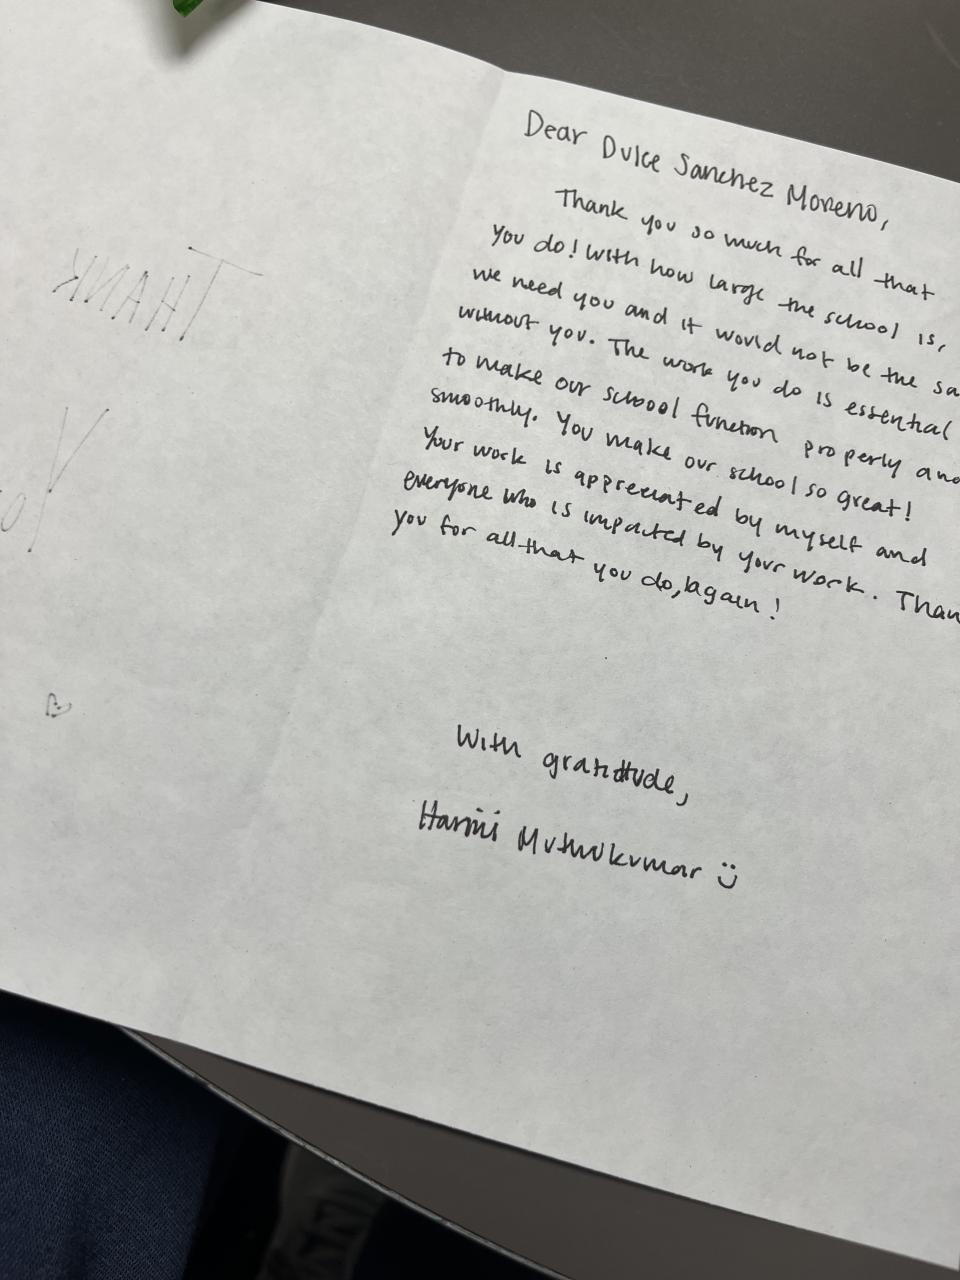 Dear Dulce Sanchez Moreno,
Thank you so much for all that
you do! With how large the school is,
we need you and it would not be the sa
without you. The work you do is essential
to make our school function properly and
smoothly. You make our school so great!
Your work is appreciated by myself and
everyone who is impacted by your work. Than
you for all that you do, again!
With gratitude,
Harini Muthukumar
THANK